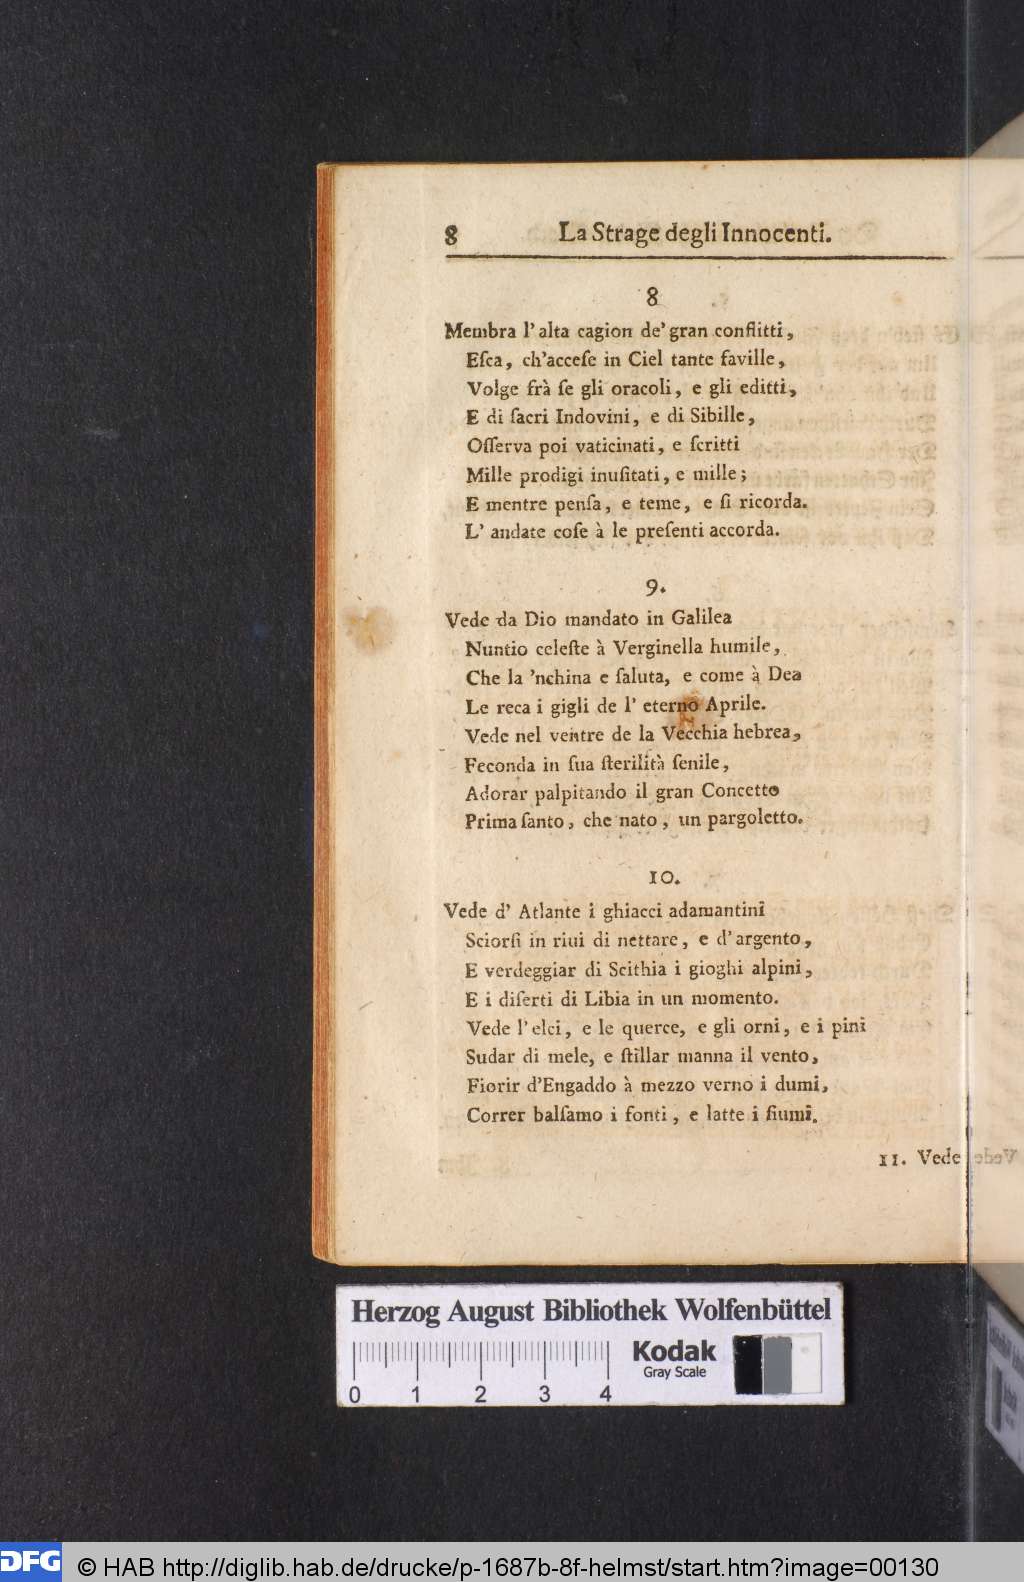 8 La Strage degli Innocenti.
8
Membra l'alta cagion de' gran conflitti,
Eſca, ch'acceſe in Ciel tante faville,
Volge frà ſe gli oracoli, e gli editti,
E di ſacri Indovini, e di Sibille,
Oſſerva poi vaticinati, e ſcritti
Mille prodigi inuſitati, e mille;
E mentre penſa, e teme, e ſi ricorda.
L' andate coſe à le preſenti accorda.
9.
Vede da Dio mandato in Galilea
Nuntio celeſte à Verginella humile,
Che la 'nchina e ſaluta, e come à Dea
Le reca i gigli de l' eterno Aprile.
Vede nel ventre de la Vecchia hebrea,
Feconda in ſua ſterilità ſenile,
Adorar palpitando il gran Concetto
Prima ſanto, che nato, un pargoletto.
10.
Vede d' Atlante i ghiacci adamantini
Sciorſi in riui di nettare, e d'argento,
E verdeggiar di Scithia i gioghi alpini,
E i diſerti di Libia in un momento.
Vede l'elci, e le querce, e gli orni, e i pini
Sudar di mele, e ſtillar manna il vento,
Fiorir d'Engaddo à mezzo verno i dumi,
Correr balſamo i fonti, e latte i fiumi.
11. Vede
Herzog August Bibliothek Wolfenbüttel
Kodak
Gray Scale
0 1 2 3 4
DFG © HAB http://diglib.hab.de/drucke/p-1687b-8f-helmst/start.htm?image=00130